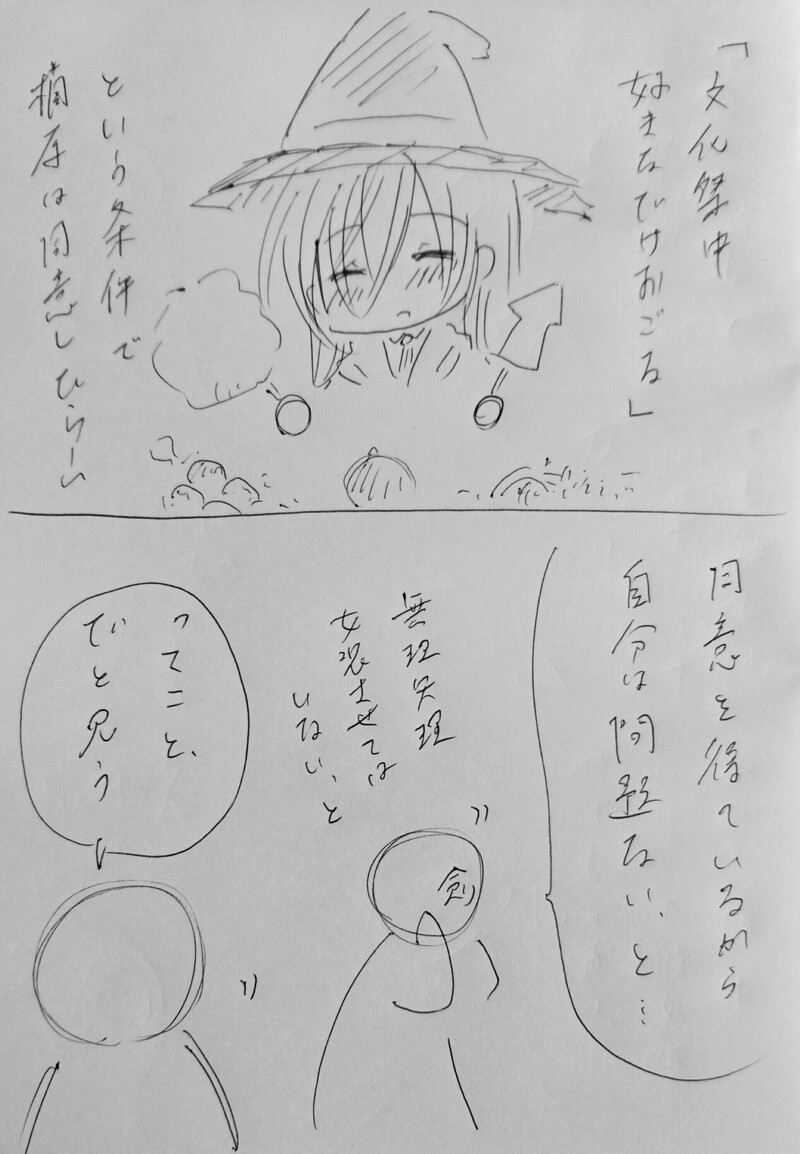 「文化祭中
好きなだけおごる」
という条件で
楠原は同意しひらーい
同意を得ているから
自分は問題ない、と…
無理矢理
女装させては
いない、と
剣
ってこと、
だと思う